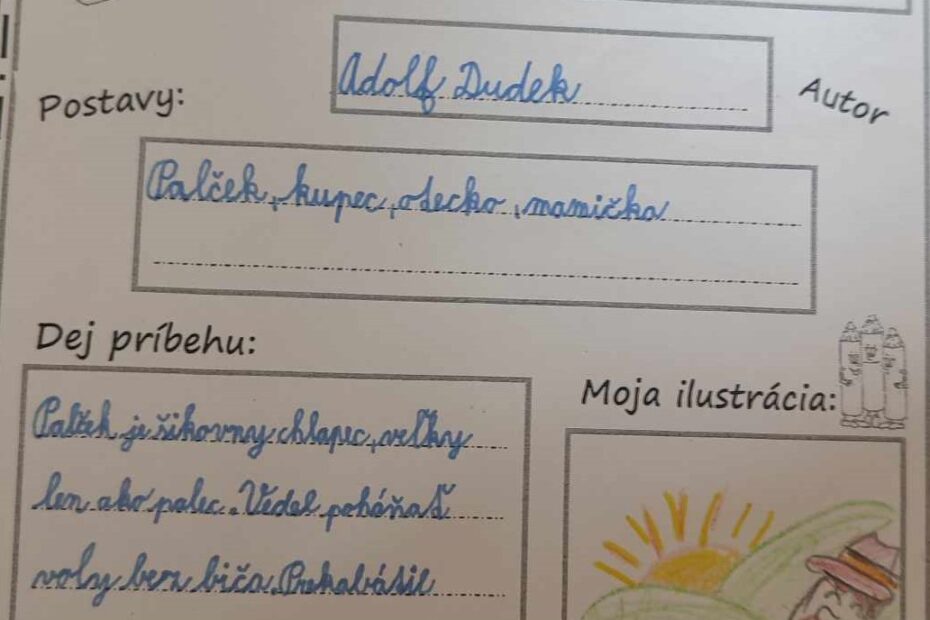 Adolf Dudek
Autor
Postavy:
Palček, kupec, otecko, mamička
Dej príbehu:
Palček je šikovny chlapec, veľky
len ako palec. Vedel poháňať
voly bez biča.
Moja ilustrácia: